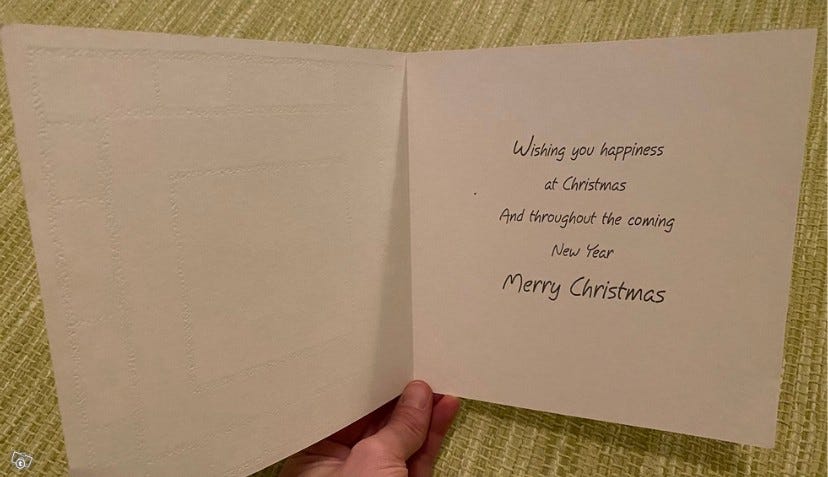 Wishing you happiness
at Christmas
And throughout the coming
New Year
Merry Christmas